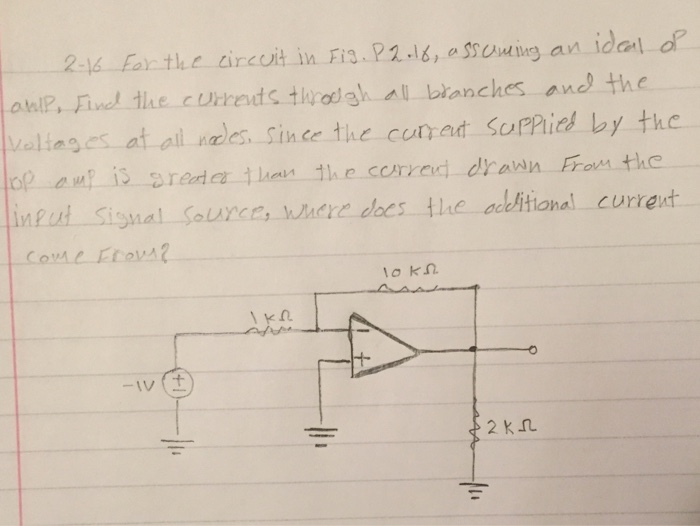 2-16 For the circuit in Fig. P2.16, assuming an ideal op
amp, Find the currents through all branches and the
voltages at all nodes. Since the current supplied by the
op amp is greater than the current drawn From the
input signal source, where does the additional current
come From?
10 KΩ
1 KΩ
-
+
-1V
+
-
2 KΩ